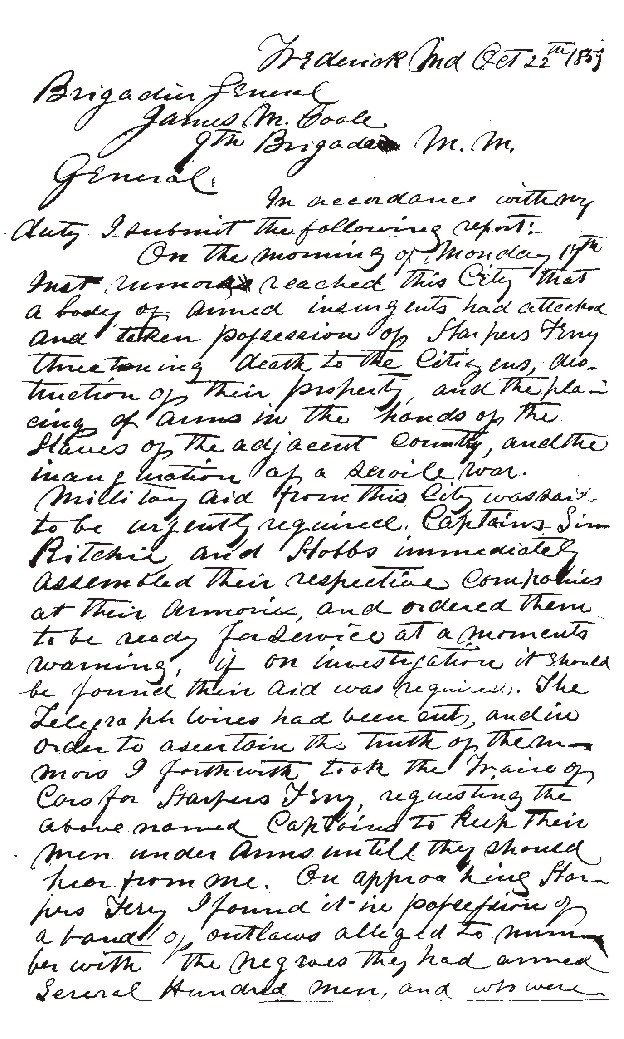 Frederick Md Oct 22th 1859
Brigadier General
James M. Coale
9th Brigade M. M.
General.
In accordance with my
duty I submit the following report:
On the morning of Monday 17th
Inst rumors reached this City that
a body of armed insurgents had attacked
and taken possession of Harpers Ferry
threatening death to the Citizens, des-
truction of their property, and the pla-
cing of arms in the hands of the
Slaves of the adjacent County, and the
inauguration of a servile war.
Military aid from this City was said
to be urgently required. Captains Sinn
Ritchie and Hobbs immediately
assembled their respective Companies
at their Armories, and ordered them
to be ready for service at a moments
warning, if on investigation it should
be found their aid was required. The
Telegraph wires had been cut, and in
order to ascertain the truth of the ru-
mors I forthwith took the Train of
Cars for Harpers Ferry, requesting the
above named Captains to keep their
men under arms untill they should
hear from me. On approaching Har-
pers Ferry I found it in possession of
a band of outlaws alleged to num-
ber with the negroes they had armed
several Hundred men, and who were